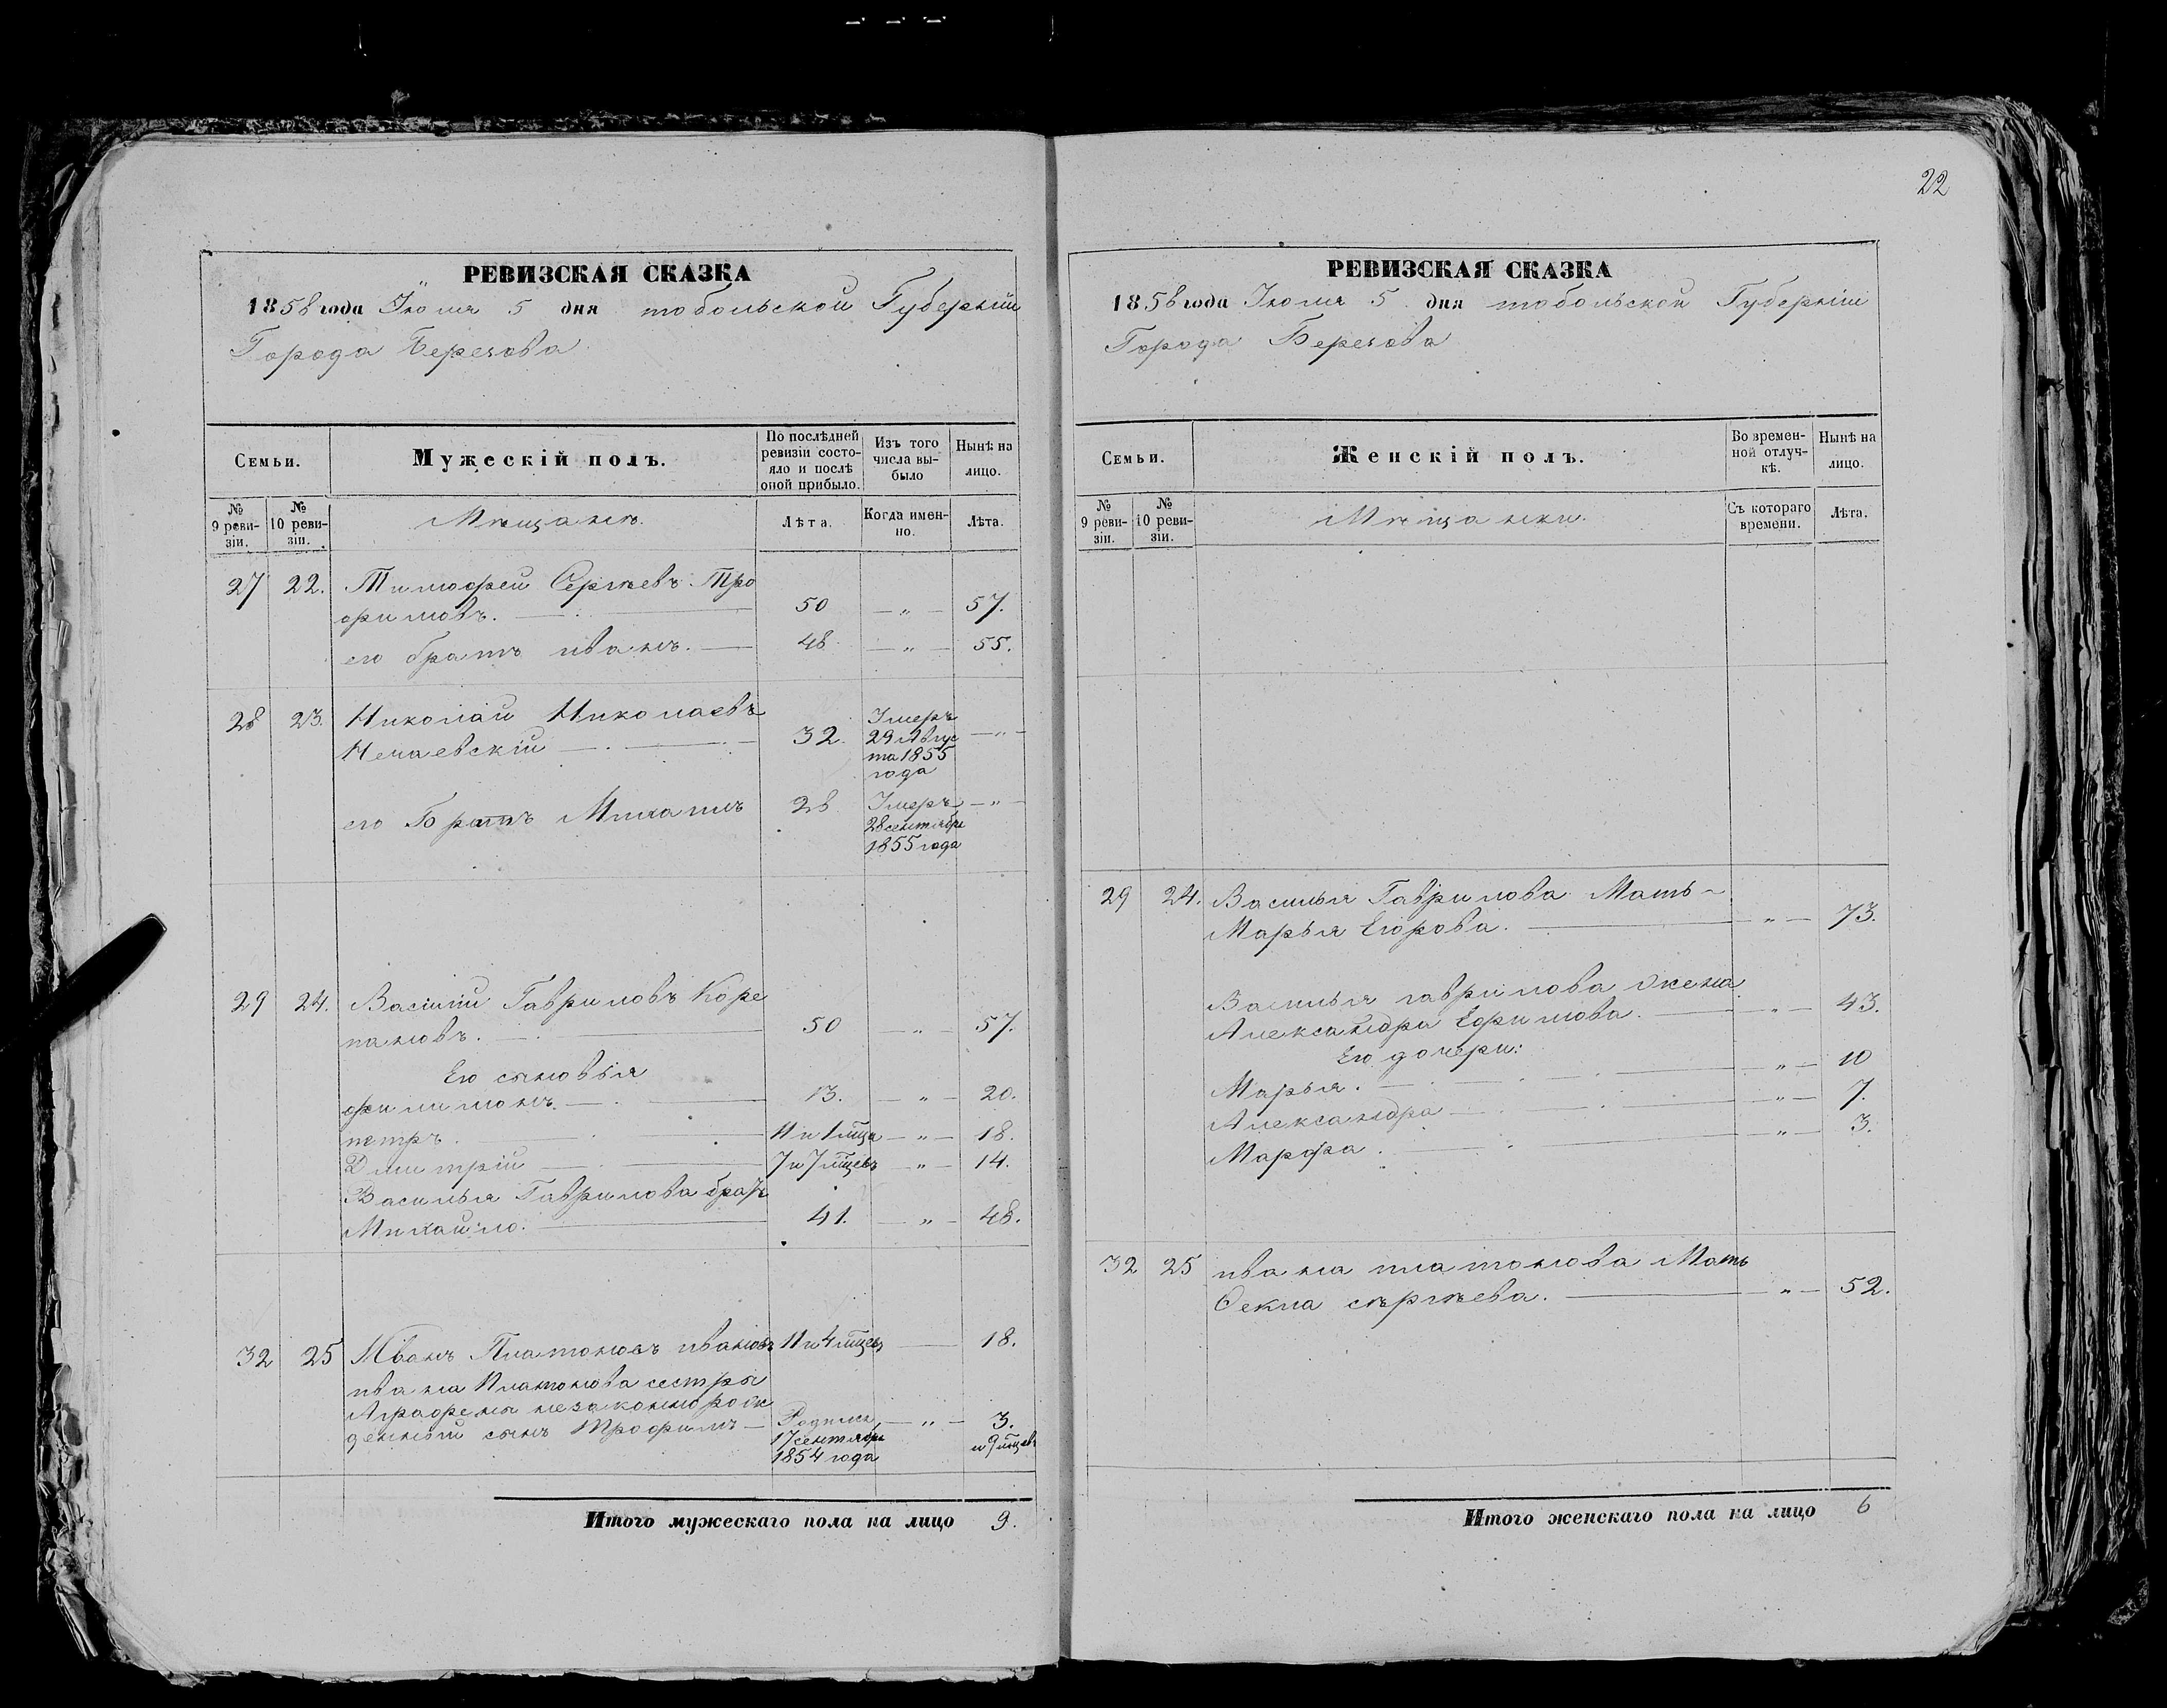 22
РЕВИЗСКАЯ СКАЗКА
1858 года Іюля 5 дня тобольской Губерніи
Города Березова
Семьи.
Мужескій полъ.
По послѣдней ревизіи состояло и послѣ оной прибыло.
Изъ того числа выбыло
Нынѣ на лицо.
№ 9 ревизіи.
№ 10 ревизіи.
Мѣщанѣ.
Лѣта.
Когда именно.
Лѣта.
27 22. Тимофей Сергѣевъ Тро
фимовъ. 50 — „ — 57.
его братъ иванъ. 48 — „ — 55.
28 23. Николай Николаевъ
Нечаевскій 32. Умеръ 29 Августа 1855 года — „ —
его Братъ Михаилъ 28 Умеръ 28 сентября 1855 года — „ —
29 24. Васілій Гавриловъ Коре
пановъ. 50 — „ — 57.
Его сыновья
филимонъ. 13. — „ — 20.
петръ. 11 и 1 мца — „ — 18.
Дмитрій 7 и 7 мцевъ — „ — 14.
Василья Гаврилова братъ
Михайло. 41. — „ — 48.
32 25 Иванъ Платоновъ ивановъ 11 и 4 мцевъ — 18.
ивана Платонова сестры
Аграфены незаконнорож
денный сынъ Трофимъ — Родился 17 сентября 1854 года — „ — 3. и 9 мцевъ
Итого мужескаго пола на лицо 9.
РЕВИЗСКАЯ СКАЗКА
1858 года Іюля 5 дня тобольской Губерніи
Города Березова
Семьи.
Женскій полъ.
Во временной отлучкѣ.
Нынѣ на лицо.
№ 9 ревизіи.
№ 10 ревизіи.
Мѣщанки.
Съ котораго времени.
Лѣта.
29 24. Василья Гаврилова Мать
Марья Егорова. — „ — 73.
Василья гаврилова жена
Александра Ефимова. — „ — 43.
Его дочери:
Марья. — „ — 10
Александра — „ — 7.
Марфа. — „ — 3.
32 25 ивана платонова Мать
Фекла сѣргѣева. — „ — 52.
Итого женскаго пола на лицо 6